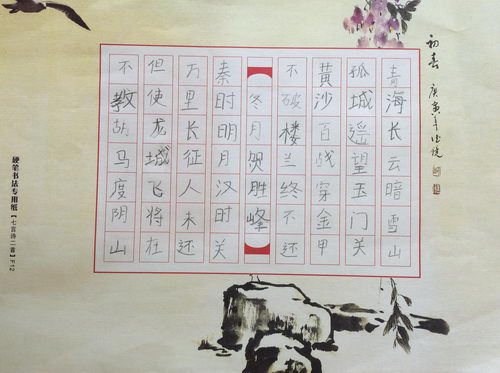 初春
庚寅年
青海长云暗雪山
孤城遥望玉门关
黄沙百战穿金甲
不破楼兰终不还
冬月贺胜峰
秦时明月汉时关
万里长征人未还
但使龙城飞将在
不教胡马度阴山
硬笔书法专用纸【七言诗二首】F12